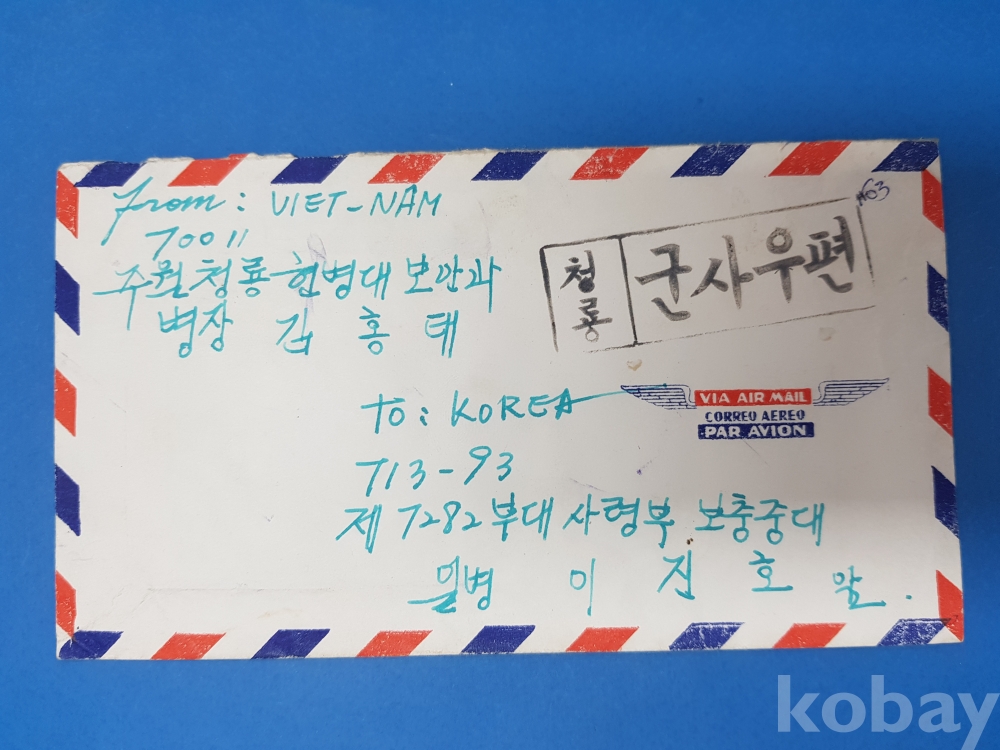 From: VIET-NAM
70011
주월 청룡 헌병대 보안과
병장 김 홍 태
청룡
군사우편
VIA AIR MAIL
CORREO AEREO
PAR AVION
TO: KOREA
713-93
제 7282 부대 사령부 보충중대
일병 이 진 호 앞.
kobay